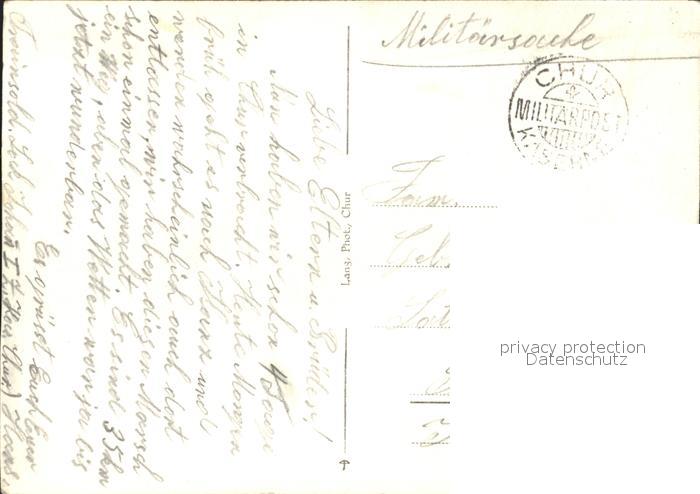 Militärsache
CHUR
MILITÄRPOST
Liebe Eltern u. Brüder!
Nun haben wir schon 4 Tage
in Chur verbracht. Heute Morgen
früh geht es nach Ilanz und
werden wahrscheinlich auch dort
entlassen, wir haben diesen Marsch
schon einmal gemacht. Es sind 35 km
ein Weg, aber das Wetter war ja bis
jetzt wunderbar.
Es grüsst Euch Euer
Hans.
Trainsold. Geb. Chur)
Lang, Phot., Chur
Fam.
Geb
privacy protection
Datenschutz